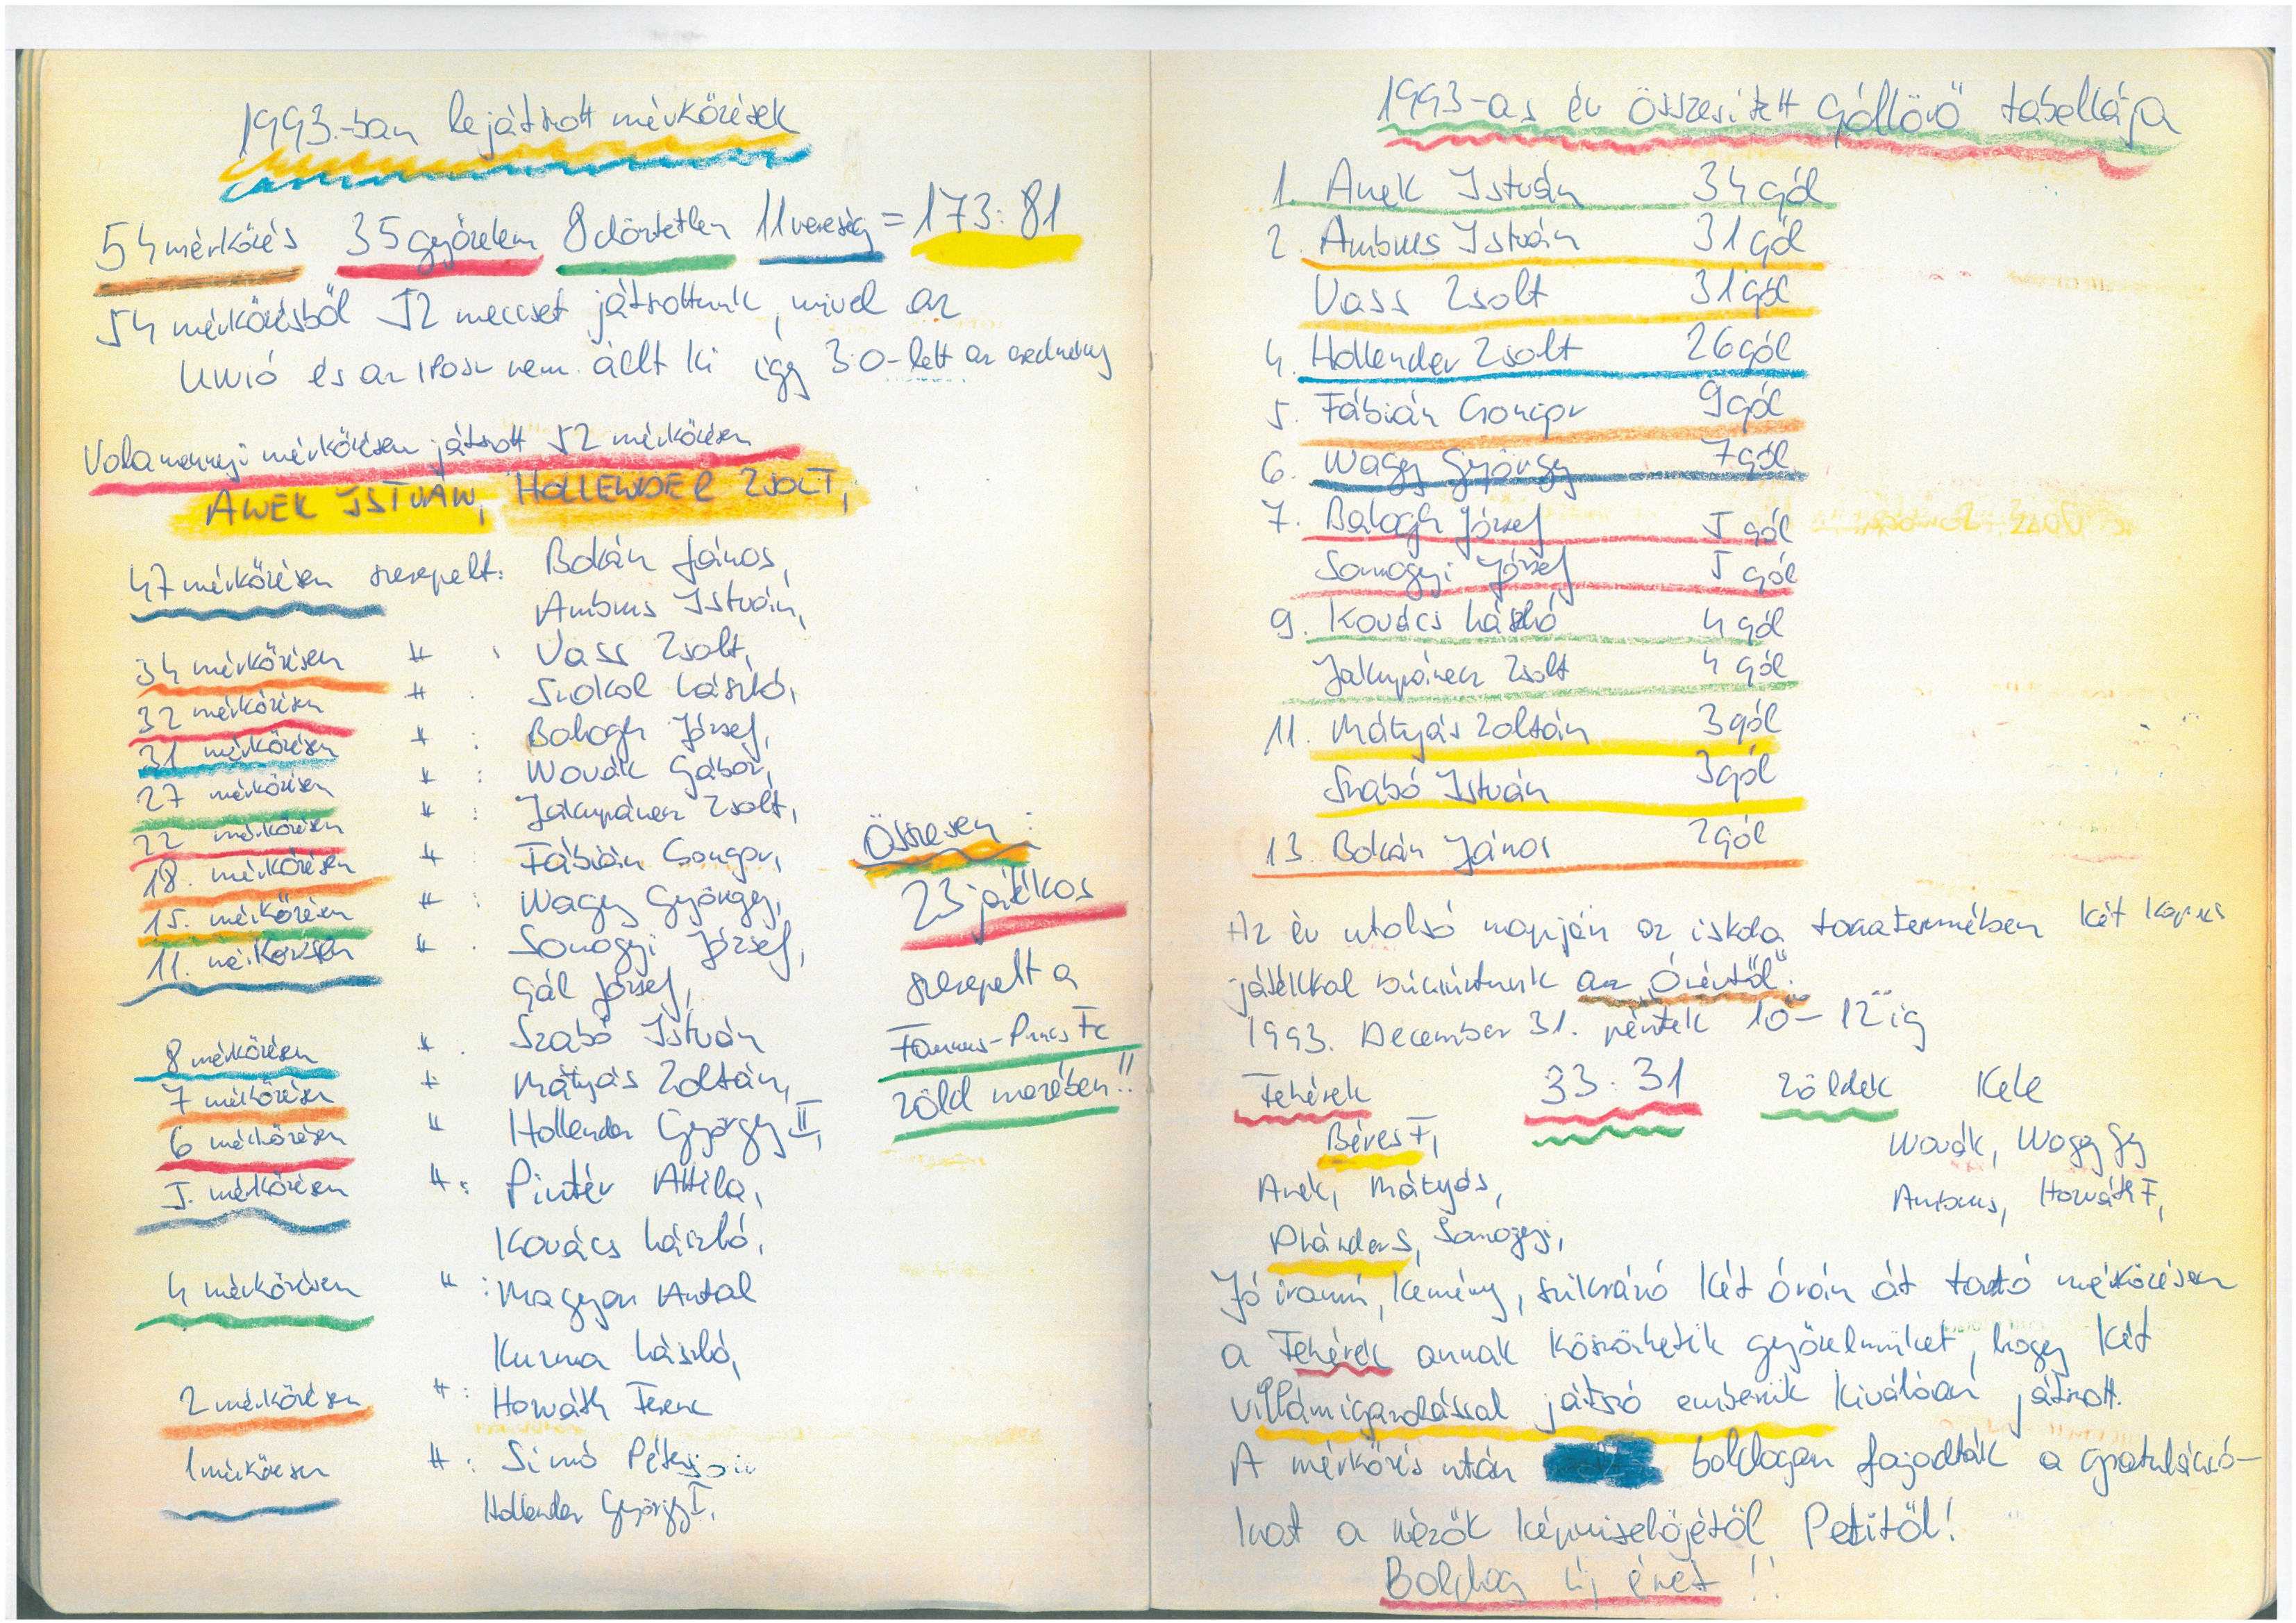 1993.-ban lejátszott mérkőzések
54 mérkőzés 35 győzelem 8 döntetlen 11 vereség = 173:81
54 mérkőzésből 52 meccset játszottunk, mivel az
Unió és az nem állt ki így 3:0-lett az eredmény
Valamennyi mérkőzésen játszott 52 mérkőzésen
ANEK ISTVÁN, HOLLENDER ZSOLT,
47 mérkőzésen szerepelt: Bokán János,
Ambrus István,
34 mérkőzésen " : Vass Zsolt,
32 mérkőzésen " : Szokol László,
31 mérkőzésen " : Balogh József,
27 mérkőzésen " : Novák Gábor,
22 mérkőzésen " : Jakupánecz Zsolt,
18. mérkőzésen " : Fábián Csongor,
15. mérkőzésen " : Nagy György,
11. mérkőzésen " : Somogyi József,
Gál József,
8 mérkőzésen " : Szabó István
7 mérkőzésen " Mátyás Zoltán,
6 mérkőzésen " Hollender György II,
5. mérkőzésen " : Pintér Attila,
Kovács László,
4 mérkőzésen " : Magyar Antal
Kuzma László,
2 mérkőzésen " : Horváth Ferenc
1 mérkőzésen " : Simó Péter
Hollender György I,
Összesen :
23 játékos
szerepelt a
Fc
zöld mezében!!
1993-as év összesített góllövő tabellája
1. Anek István 34 gól
2. Ambrus István 31 gól
Vass Zsolt 31 gól
4. Hollender Zsolt 26 gól
5. Fábián Csongor 9 gól
6. Nagy György 7 gól
7. Balogh József 5 gól
Somogyi József 5 gól
9. Kovács László 4 gól
Jakupánecz Zsolt 4 gól
11. Mátyás Zoltán 3 gól
Szabó István 3 gól
13. Bokán János 2 gól
Az év utolsó napján az iskola tornatermében két kapus
játékkal búcsúztunk az "Óévtől".
1993. December 31. péntek 10⁰⁰-12⁰⁰ig
Fehérek 33:31 Zöldek Kele
Béres F, Novák, Nagy Gy
Anek, Mátyás, Ambrus, Horváth F,
Somogyi,
Jó iramú, kemény, szikrázó két órán át tartó mérkőzésen
a Fehérek annak köszönhetik győzelmüket, hogy két
villámigazolással játszó emberük kiválóan játszott.
A mérkőzés után boldogan fogadták a gratuláció-
kat a nézők képviselőjétől Petitől!
Boldog új évet !!